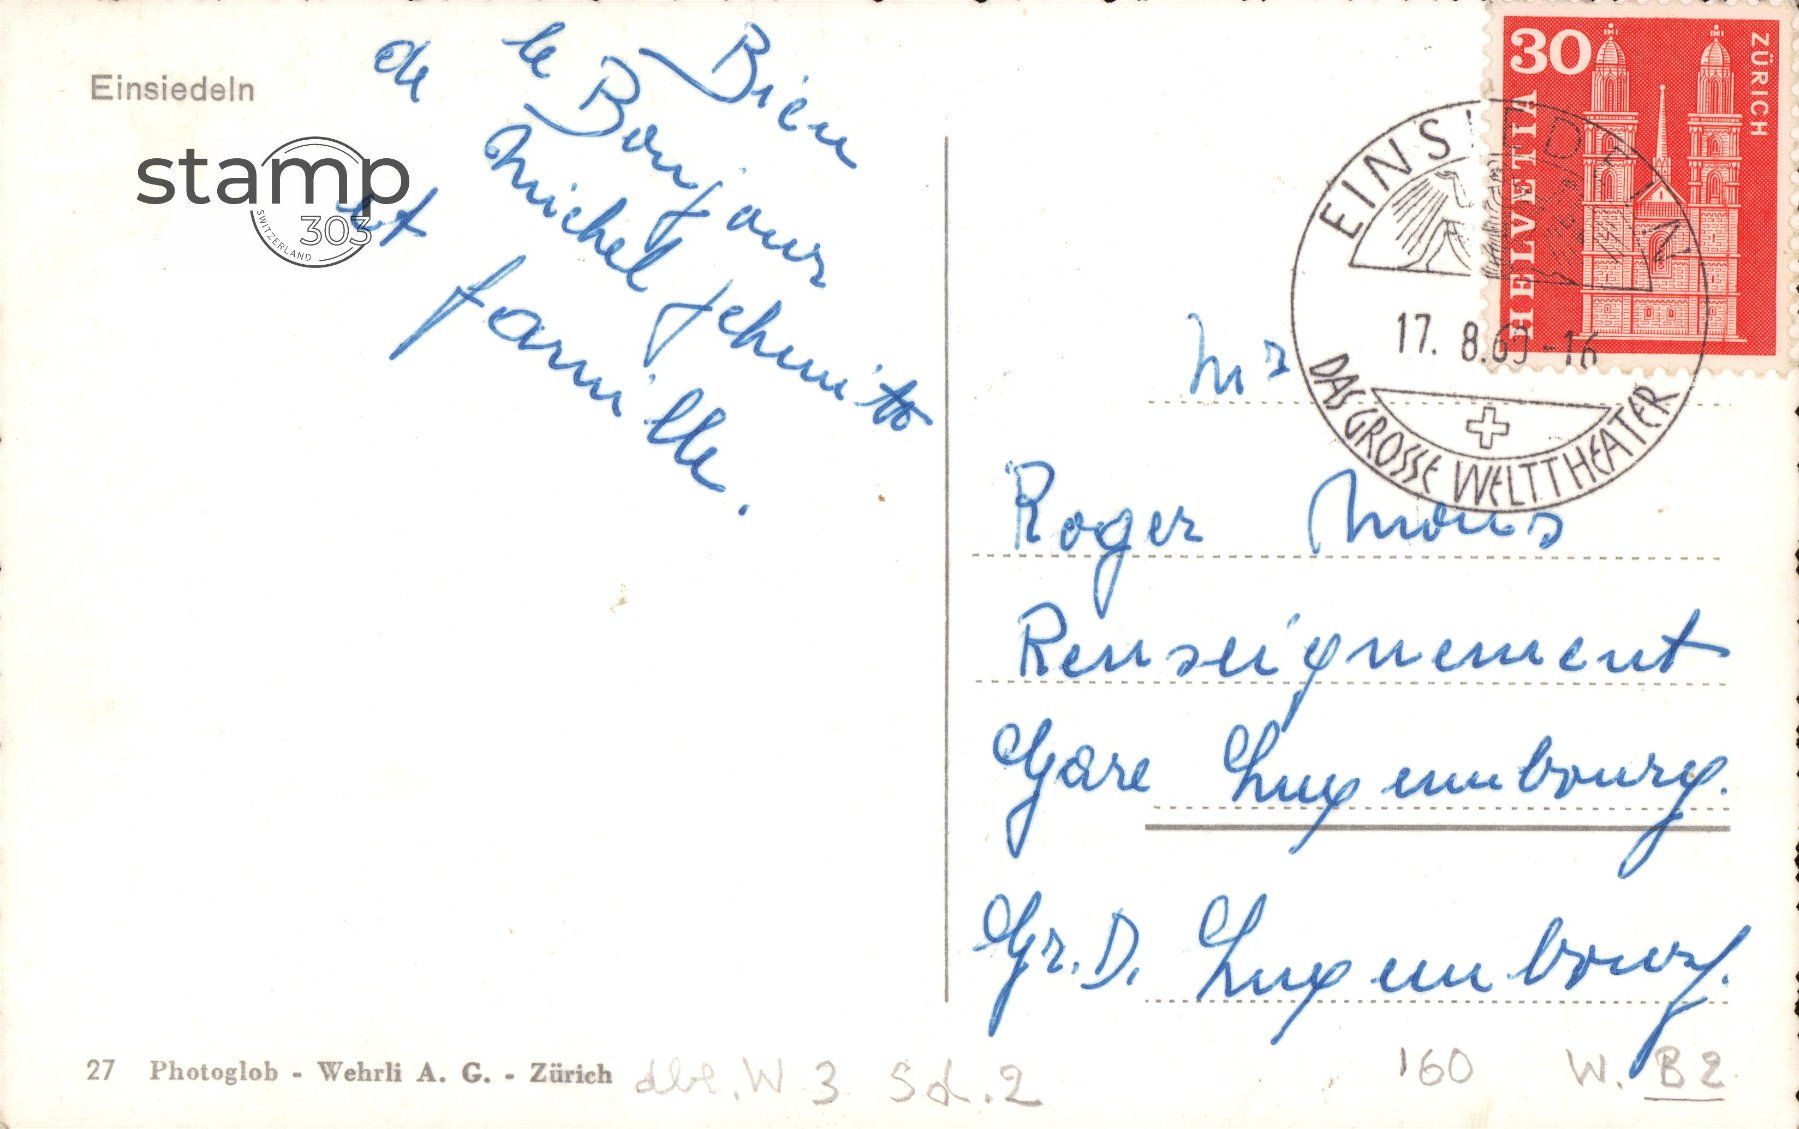 Einsiedeln
stamp
303
SWITZERLAND
Bien
le Bonjour
de Michel Schmitt
et famille.
30
ZÜRICH
HELVETIA
EINSIEDELN
17. 8.60-16
DAS GROSSE WELTTHEATER
Mr
Roger Mous
Renseignement
Gare Luxembourg.
Gr. D. Luxembourg.
27 Photoglob - Wehrli A. G. - Zürich
dbl. W 3 Sd. 2
160 W. B2